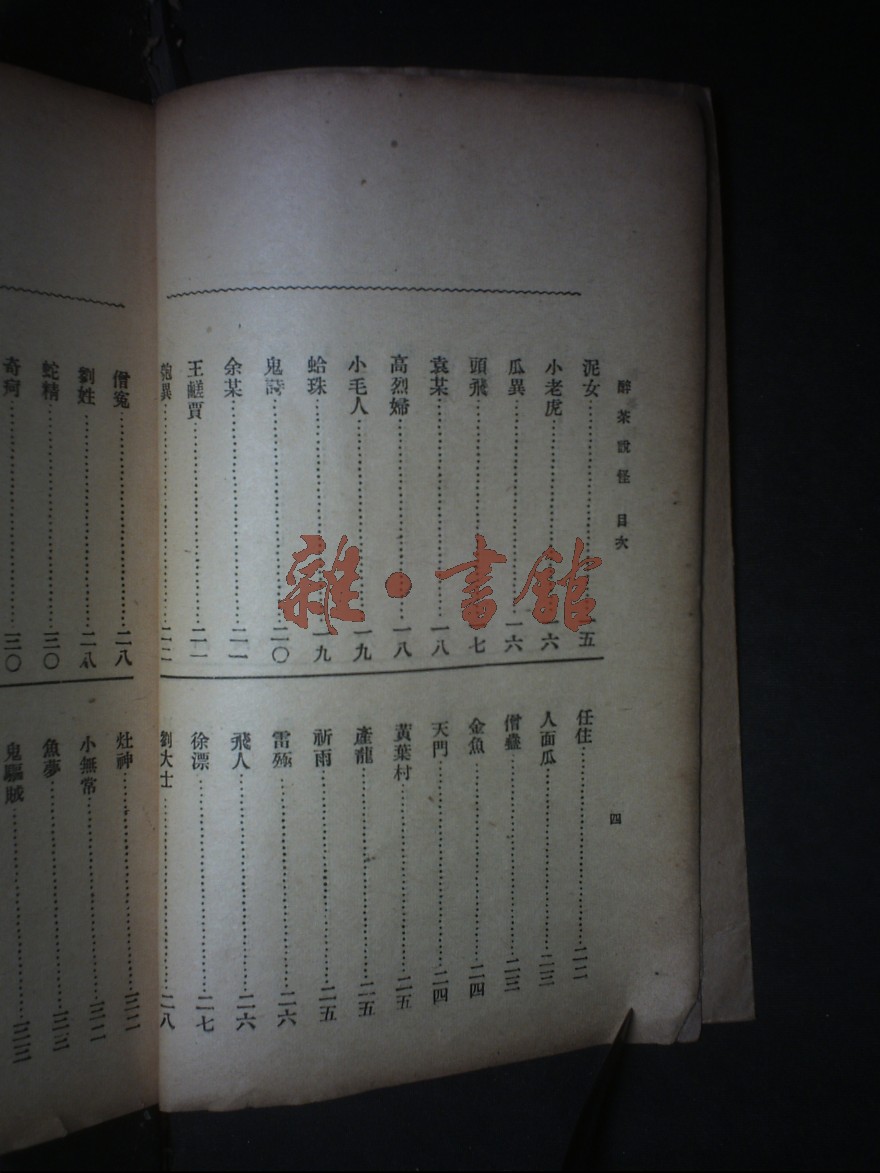 醉茶說怪 目次
四
泥女……五
小老虎……一六
瓜異……一六
頭飛……七
袁某……一八
高烈婦……一八
小毛人……一九
蛤珠……一九
鬼詩……二〇
余某……二一
王鹺賈……二一
異……二二
任住……二二
人面瓜……二三
僧蠱……二三
金魚……二四
天門……二四
黃葉村……二五
產龍……二五
祈雨……二五
雷殛……二六
飛人……二六
徐漂……二七
劉大士……二八
僧冤……二八
劉姓……二八
蛇精……三〇
奇疴……三〇
灶神……三二
小無常……三二
魚夢……三三
鬼驅賊……三三
雜·書館